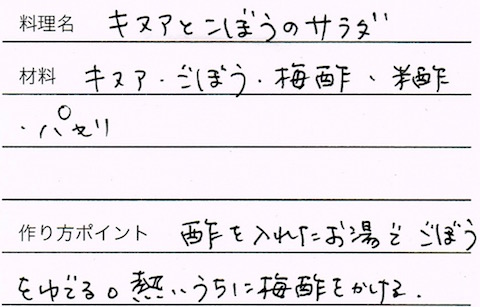 料理名 キヌアとごぼうのサラダ
材料 キヌア・ごぼう・梅酢・米酢
・パセリ
作り方ポイント 酢を入れたお湯でごぼう
をゆでる。熱いうちに梅酢をかける.